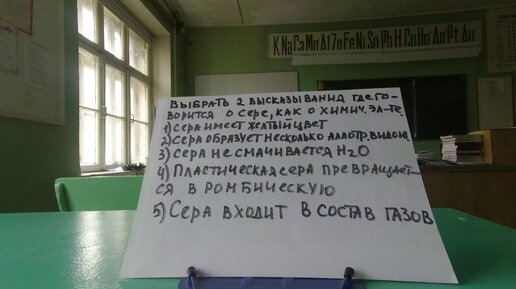 K Na Ca Mg Al Zn Fe Ni Sn Pb H Cu Hg Ag Pt Au
ВЫБРАТЬ 2 ВЫСКАЗЫВАНИЯ ГДЕ ГО-
ВОРИТСЯ О СЕРЕ, КАК О ХИМИЧ. ЭЛ-ТЕ.
1) СЕРА ИМЕЕТ ЖЕЛТЫЙ ЦВЕТ
2) СЕРА ОБРАЗУЕТ НЕСКОЛЬКО АЛЛОТР. ВИДОИЗ.
3) СЕРА НЕ СМАЧИВАЕТСЯ H2O
4) ПЛАСТИЧЕСКАЯ СЕРА ПРЕВРАЩАЕТ-
СЯ В РОМБИЧЕСКУЮ
5) СЕРА ВХОДИТ В СОСТАВ ГАЗОВ